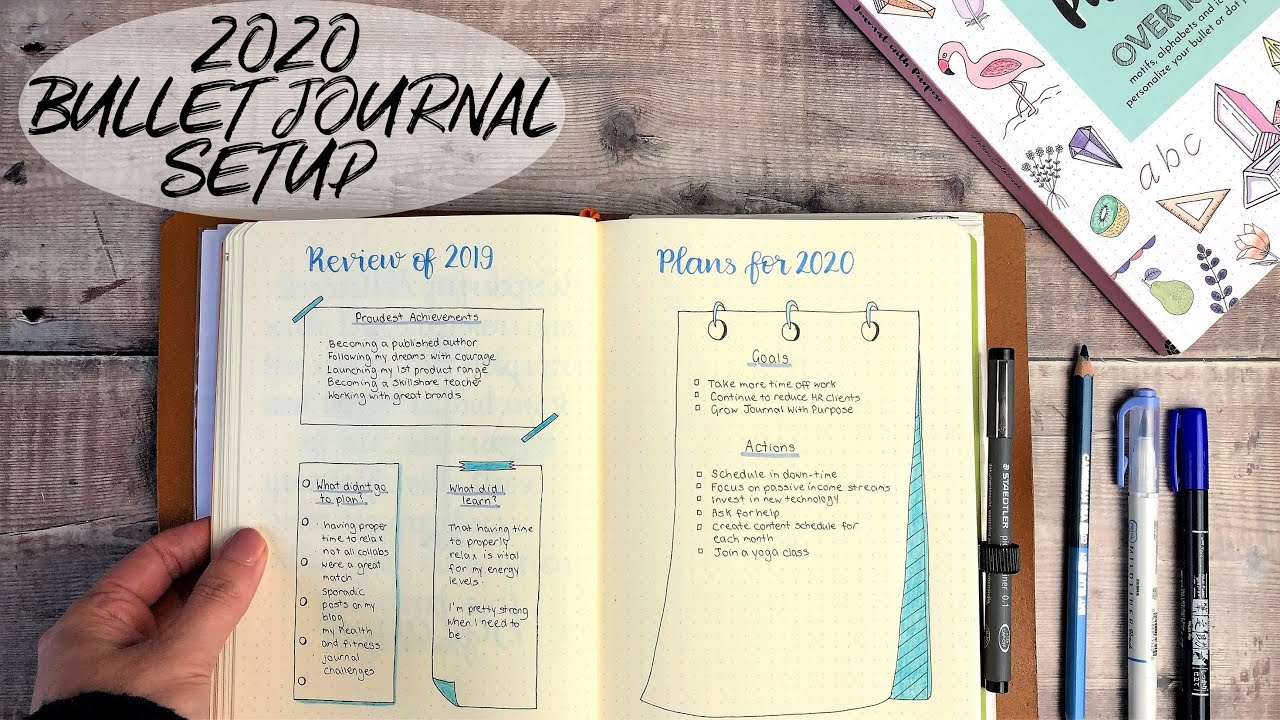 2020
BULLET JOURNAL
SETUP
Review of 2019
Proudest Achievements
· Becoming a published author
· Following my dreams with courage
· Launching my 1st product range
· Becoming a Skillshare teacher
· Working with great brands
What didn't go
to plan?
· having proper
time to relax
not all collabs
were a great
match
· sporadic
posts on my
blog
· my health
and fitness
journal
challenges
What did I
learn?
That having time
to properly
relax is vital
for my energy
levels.
I'm pretty strong
when I need to
be
Plans for 2020
Goals
Take more time off work
Continue to reduce HR clients
Grow Journal With Purpose
Actions
Schedule in down-time
Focus on passive income streams
Invest in new technology
Ask for help
Create content schedule for
each month
Join a yoga class
Journal with Purpose
OVER
motifs, alphabets and
personalize your bullet or dot
abc
STAEDTLER
0.1
MILDLINER